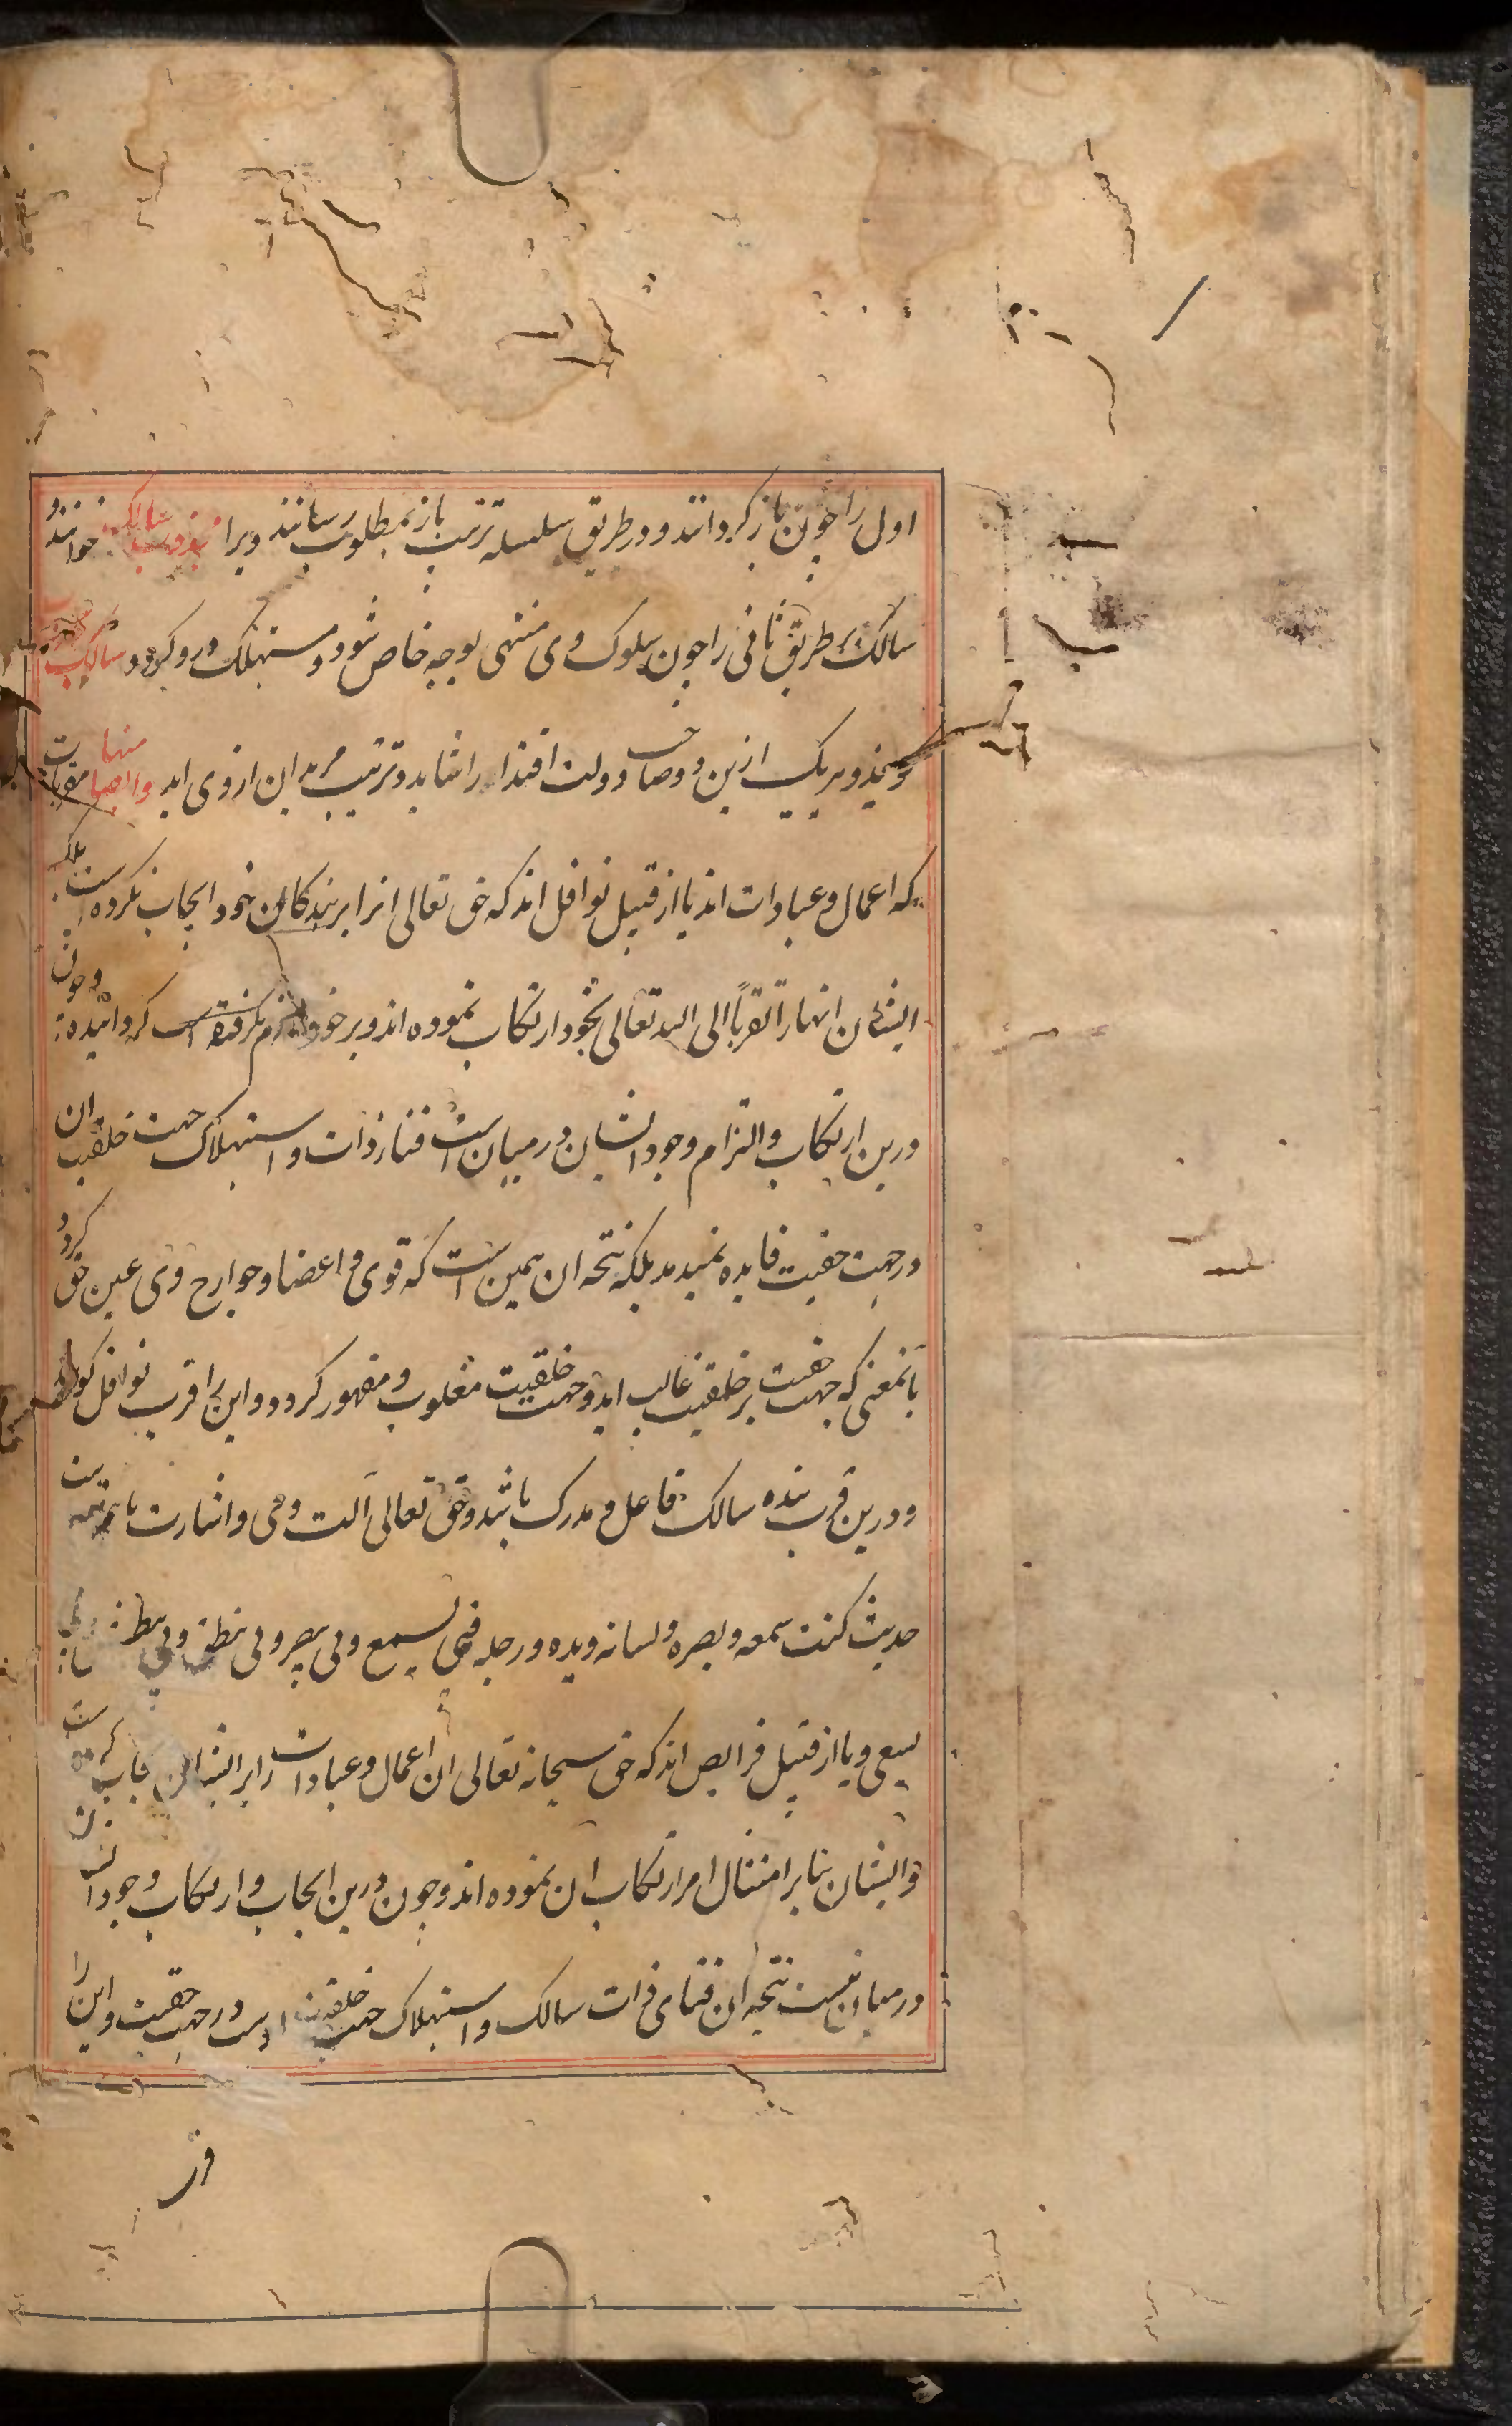 اول را چون باز کردانند و در طریق سلسله ترتیب باز بمطلوب رسانند ویرا مجذوب سالک خوانند و
سالک طریق ثانی را چون سلوک وی منتهی بوجه خاص شود و مستهلک درو کردد سالک مجذوب
کویند و هر یک ازین دو صاحب دولت اقتدا را شاید و تربیت مریدان از وی اید وایضا منها مقربات
که اعمال و عبادات اند یا از قبیل نوافل اند که حق تعالی انرا بر بندکان خود ایجاب نکرده است بلکه
ایشان انها را تقرباً الی الله تعالی بخود ارتکاب نموده اند و بر خود لازم کردانیده و چون
درین ارتکاب و التزام وجود ایشان در میان است فنا ذات و استهلاک جهت خلقیت ان
در جهت حقیت فایده نمیدهد بلکه نتیجه ان همین است که قوی و اعضا و جوارح وی عین حق کردد
بانمعنی که جهت حقیت بر خلقیت غالب اید و جهت خلقیت مغلوب و مقهور کردد و این را قرب نوافل کویند
و درین قرب بنده سالک فاعل و مدرک باشد و حق تعالی آلت وی و اشارت باین مرتبه
حدیث کنت سمعه و بصره و لسانه و یده و رجله فبی یسمع و بی یبصر و بی ینطق و بی یبطش و بی
یسعی و یا از قبیل فرایض اند که حق سبحانه تعالی ان اعمال و عبادات را بر ایشان ایجاب کرده است
و ایشان بنا بر امتثال امر ارتکاب ان نموده اند و چون درین ایجاب و ارتکاب وجود ایشان
در میان نیست نتیجه ان فنای ذات سالک و استهلاک جهت خلقیت اوست در جهت حقیت و این را
قر